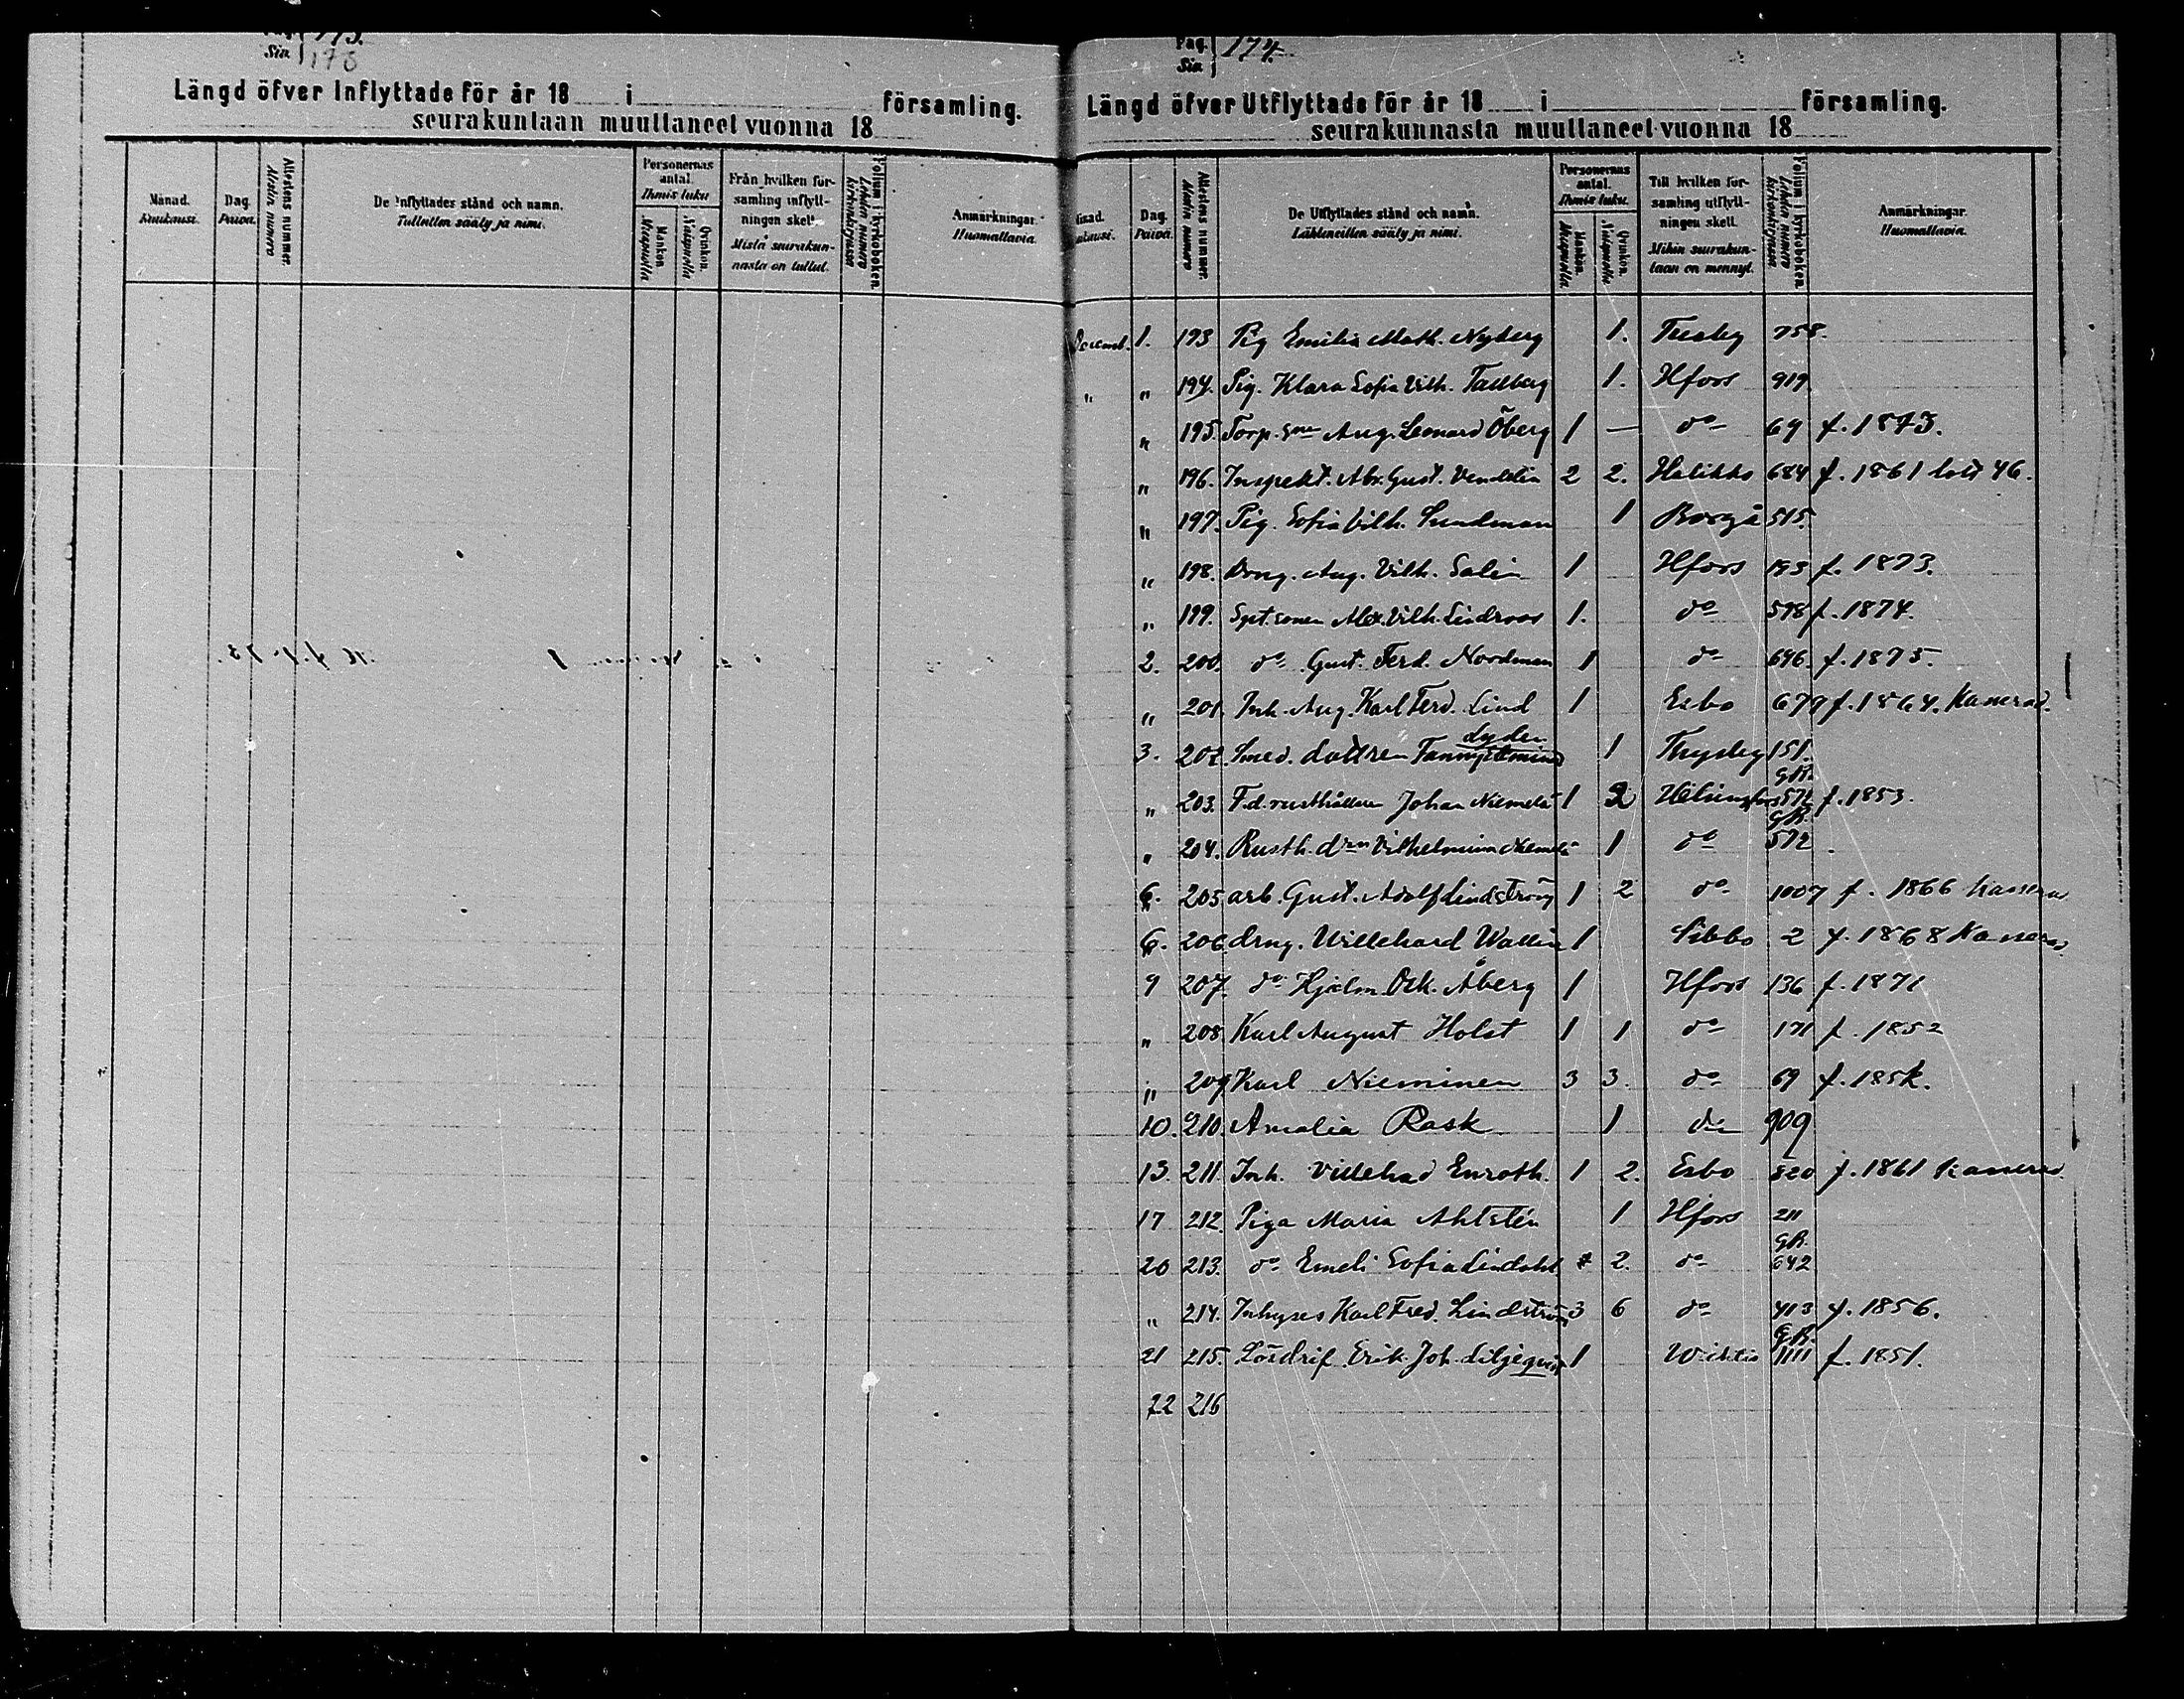 Sia 173.
178
Längd öfver Inflyttade för år 18 i församling.
seurakuntaan muuttaneet vuonna 18
Månad. Kuukausi.
Dag. Päivä.
Attestens nummer. Alistin numero
De Inflyttades stånd och namn. Tulleitten sääty ja nimi.
Personernas antal. Ihmis luku
Mankön. Miespuolia
Qvinkön. Naispuolia
Från hvilken församling inflyttningen skett. Mistä seurakunnasta on tullut.
Folium i kyrkoboken. Lehden numero kirkonkirjassa
Anmärkningar. Huomattavia.
Pag. Sia 174.
Längd öfver Utflyttade för år 18 i församling.
seurakunnasta muuttaneet vuonna 18
Dag. Päivä.
Attestens nummer. Alistin numero
De Utflyttades stånd och namn. Lähteneitten sääty ja nimi.
Personernas antal. Ihmis luku.
Mankön. Miespuolia
Qvinkön. Naispuolia
Till hvilken församling utflyttningen skett. Mihin seurakuntaan on mennyt.
Folium i kyrkoboken. Lehden numero kirkonkirjassa
Anmärkningar. Huomattavia.
Decemb. 1. 193 Pig Emilia Math. Nyberg 1. Tusby 758.
" " 194. Pig. Klara Sofia Vilh. Tallberg 1. Hfors 919
" 195. Torp. sne Aug. Leonard Öberg 1 — do 69 f. 1873.
" 196. Inspekt. Abr. Gust. Vendelin 2 2. Halikko 684 f. 1861 lott 46.
" 197. Pig. Sofia Vilh. Sundman 1 Borgå 515.
" 198. Drng. Aug. Vilh. Salin 1 Hfors 195 f. 1873.
" 199. Spt. sonen Alex. Vilh. Lindroos 1. do 598 f. 1874.
2. 200. do Gust. Ferd. Nordman 1 do 646. f. 1875.
" 201. Inh. Aug. Karl Ferd. Lind 1 Esbo 679 f. 1864. Kaserad.
3. 202. Smed. dottren Fanny 1 Thusby 151.
" 203. F.d. rusthållaren Johan Niemelä 1 2 Helsingfors GR. 572 f. 1853.
" 204. Rusth. drn Vilhelmina Niemelä 1 do GR. 572
6. 205 arb. Gust. Adolf Lindström 1 2 do 1007 f. 1866 Kaserad
6. 206. drng. Willehard Wallin 1 Sibbo 2 f. 1868 Kaserad
9 207. do Hjalm. Osk. Åberg 1 Hfors 136 f. 1871
" 208 Karl August Holst 1 1 do 171 f. 1852
" 209 Karl Nieminen 3 3. do 69 f. 185
10. 210. Amalia Rask 1 do 909
13. 211. Inh. Villehad Enroth. 1 2. Esbo 520 f. 1861 Kaserad.
17 212. Piga Maria Ahlstén 1 Hfors 211
20 213. do Emeli Sofia Lindahl 2. do GR. 642
" 214. Inhyses Karl Fred. Lindström 3 6 do 413 f. 1856.
21 215. Lösdrif. Erik Joh. Liljeqvist 1 Wichtis GR. 1111 f. 1851.
22 216